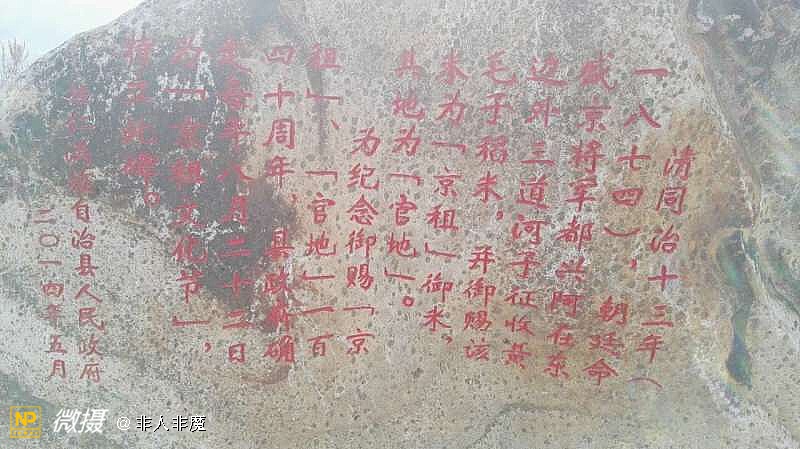 清同治十三年（
一八七四），朝廷命
盛京将军都兴阿在东
边外三道河子征收黄
毛子稻米，并御赐该
米为「京租」御米，
其地为「官地」。
为纪念御赐「京
租」、「官地」一百
四十周年，县政府确
定每年八月二十三日
为「京租文化节」，
特立此碑。
桓仁满族自治县人民政府
二〇一四年五月
NP
微摄 @非人非魔